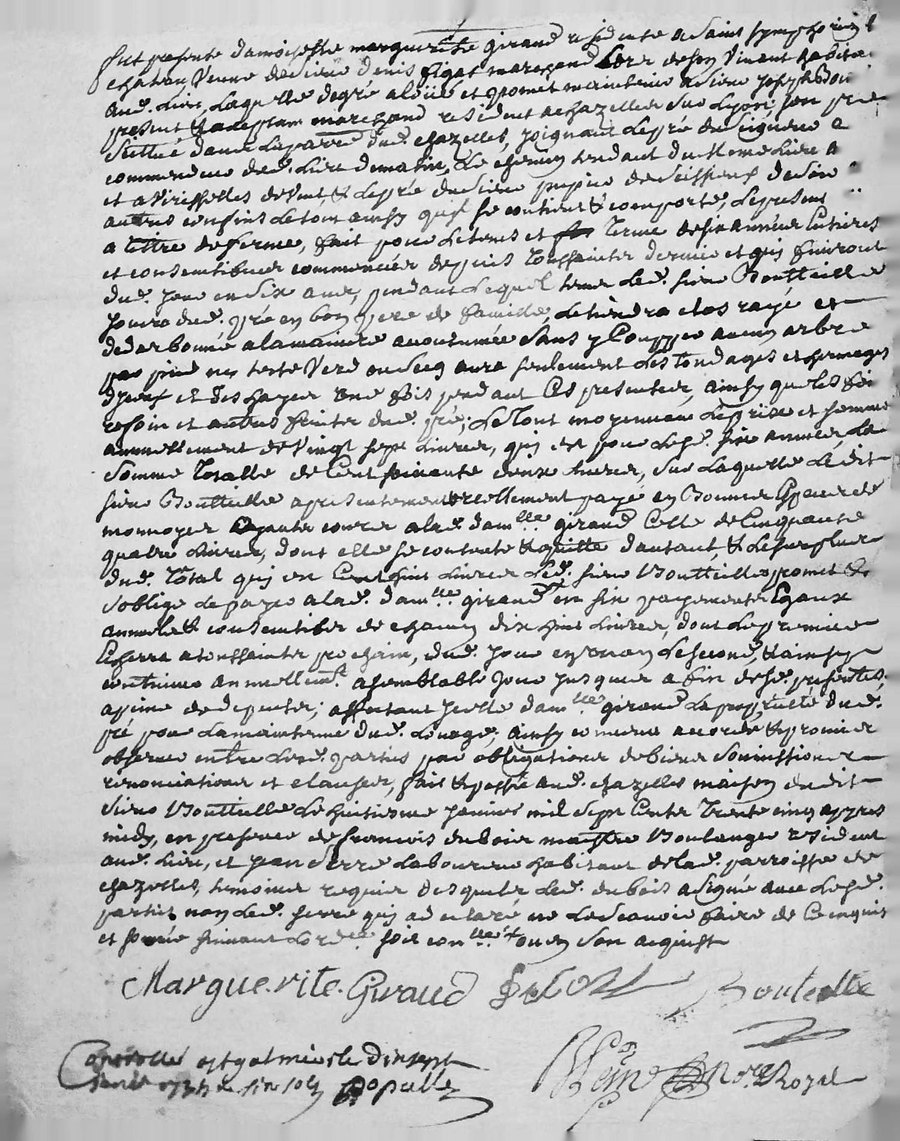 fut presente damoiselle marguerite giraud residente a Saint Symphorien le
chateau veuve de sieur denis pigat marchand lors de son vivant habitant
aud. lieu, laquelle de gré a loüé et promet maintenir a sieur joseph boutteille
present & acceptant marchand resident a chazelles sur Lyon son pré
Scittué dans la parr.e dud. chazelles, joignant le pré du sieur
commandeur dud. lieu de matin, le chemin tendant du meme lieu a
et a virisselles de vent & le pré du sieur de
autres confins le tout ainsy quil se contient & comporte, le present
a tittre de ferme, fait pour le tems et terme de six années entieres
et consecutives commencées depuis toussaints dernier et qui finiront
dud. jour en six ans, pendant lequel tems led. sieur Boutteille
jouira dud. pré en bon pere de famille, le tiendra clos rayé et
dedarbonné a la maniere accoutumée sans y coupper aucun arbre
par pied ny teste verd ou secq aura seulement les tondages et
d'yceux et des hayes une fois pendant ces presentes, ainsy que les foin
refoin et autres fruits dud. pré; le tout moyennant le prix et somme
annuellement de vingt sept livres, qui est pour lesd. six années, la
somme totalle de cent soixante deux livres, sur laquelle le dit
sieur Boutteille a presentement reellement payé en bonnes especes de
monnoyes ayants cours a lad. dam.lle giraud celle de cinquante
quatre livres, dont elle se contente & quitte d'autant & le surplus
dud. total qui est cent huit livres led. sieur Boutteille promet &
s'oblige de payer a lad. dam.lle giraud en six payements egaux
annuels & consecutifs de chacun dix huit livres, dont le premier
echerra a toussaints prochain, dud. jour en un an le second, & ainsy
continuer annuellem.t a semblable jour jusques a fin desd. presentes,
a peine de depents; affectant jcelle dam.lle giraud la proprieté dud.
pré pour la maintenue dud. louage; ainsy convenu accordé & promis
observer entre lesd. parties par obligations de biens soumissions
renonciations et clauses, fait & passé aud. chazelles maison dudit
sieur Boutteille le huitieme janvier mil sept cents trente cinq appres
midy, en presence de francois dubois maistre Boulanger resident
aud. lieu, et jean serre laboureur habitant de lad. parroisse de
chazelles, temoins requis desquels led. dubois a signé avec lesd.
parties non led. serre qui a declaré ne le scavoir faire de ce enquis
et sommé suivant l'ord.ce soit con.llé ou en son acquist
Marguerite Giraud Dubois Bouteille
Controllé a st galmier le dix sept
janvier 1735 Populle
Royal